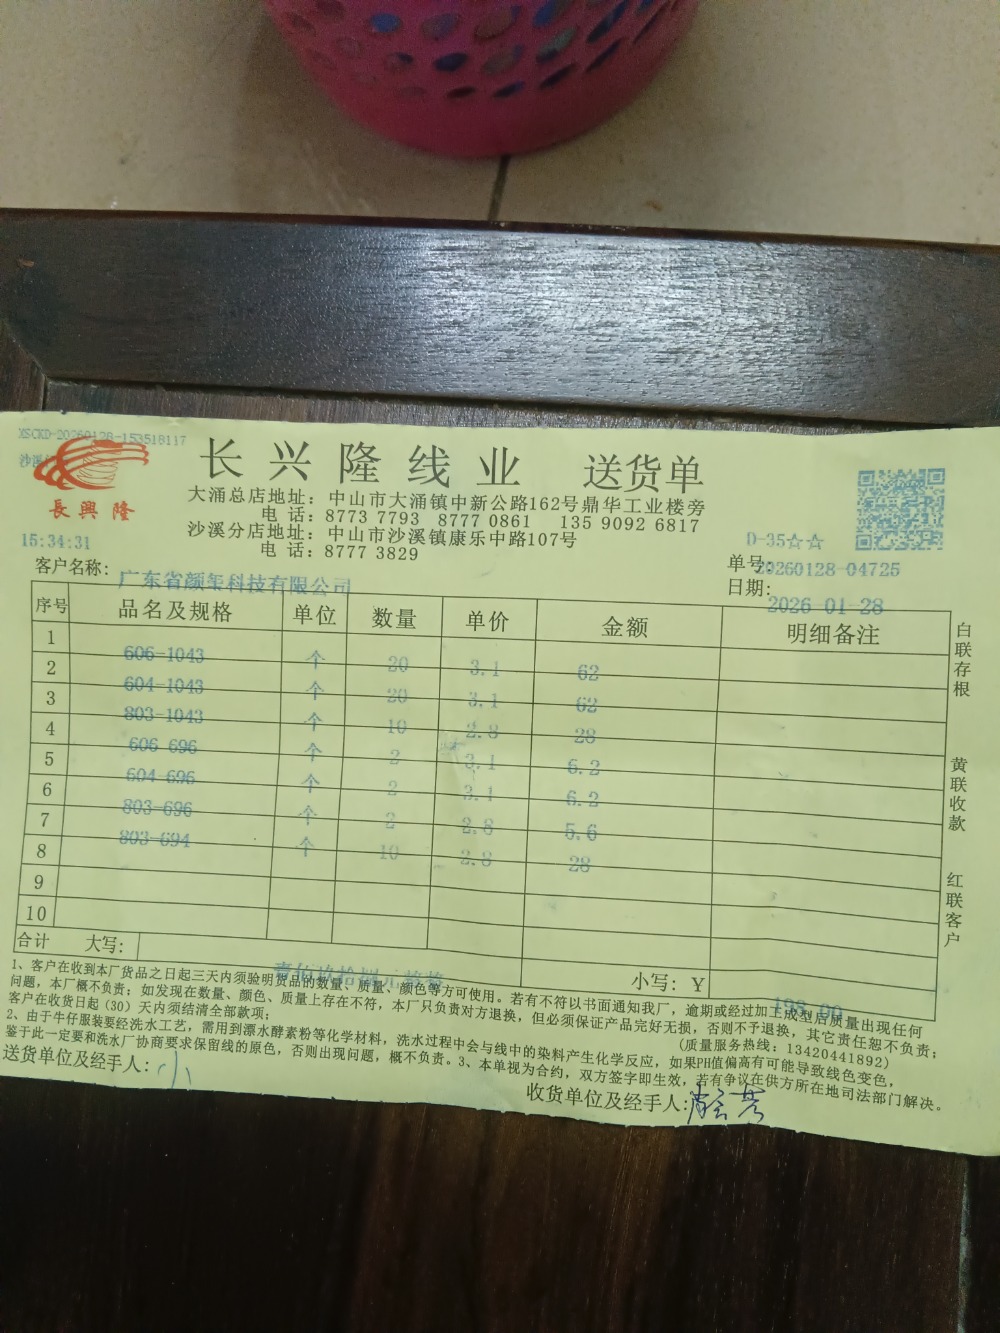 XSCKD-20260128-153518117
沙溪
長興隆
长兴隆线业 送货单
大涌总店地址: 中山市大涌镇中新公路162号鼎华工业楼旁
电 话: 8773 7793 8777 0861 135 9092 6817
沙溪分店地址: 中山市沙溪镇康乐中路107号
电 话: 8777 3829
15:34:31
D-35☆☆
单号: 20260128-04725
客户名称: 广东省颜玺科技有限公司
日期: 2026-01-28
序号 品名及规格 单位 数量 单价 金额 明细备注
1 606-1043 个 20 3.1 62
2 604-1043 个 20 3.1 62
3 803-1043 个 10 2.8 28
4 606-696 个 2 3.1 6.2
5 604-696 个 2 3.1 6.2
6 803-696 个 2 2.8 5.6
7 803-694 个 10 2.8 28
8
9
10
合计 大写: 小写: Y 198.00
1、客户在收到本厂货品之日起三天内须验明货品的数量、质量、颜色等方可使用。若有不符以书面通知我厂，逾期或经过加工成型后质量出现任何
问题，本厂概不负责；如发现在数量、颜色、质量上存在不符，本厂只负责对方退换，但必须保证产品完好无损，否则不予退换，其它责任恕不负责；
客户在收货日起（30）天内须结清全部款项； （质量服务热线：13420441892）
2、由于牛仔服装要经洗水工艺，需用到漂水酵素粉等化学材料，洗水过程中会与线中的染料产生化学反应，如果PH值偏高有可能导致线色变色，
鉴于此一定要和洗水厂协商要求保留线的原色，否则出现问题，概不负责。3、本单视为合约，双方签字即生效，若有争议在供方所在地司法部门解决。
送货单位及经手人: 小
收货单位及经手人:
白联存根
黄联收款
红联客户